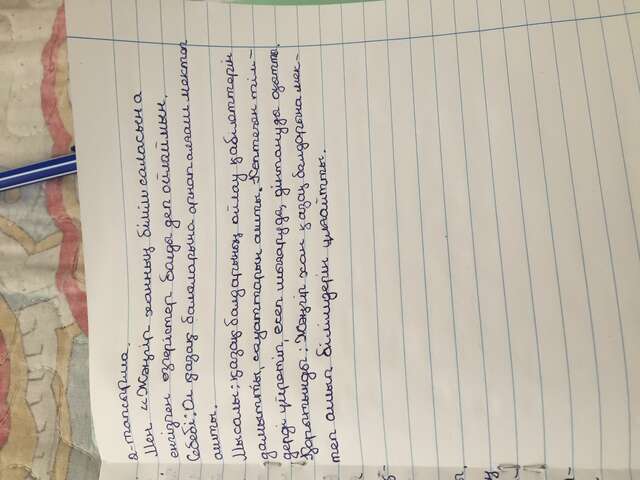 2-тапсырма.
Мен «Жәңгір ханның білім саласына
енгізген өзгерістер болды деп ойлаймын.
Себебі: Ол қазақ балаларына арнап алғаш мектеп
ашты.
Мысалы: қазақ балдарының ойлау қабілеттерін
дамытты, сауаттарын ашты. Көптеген тіл-
дерді үйретіп, есеп шығаруда, дінтануда оқытты.
Қорытынды: Жәңгір хан қазақ балдарына мек-
теп ашып білімдерін шығайтты.